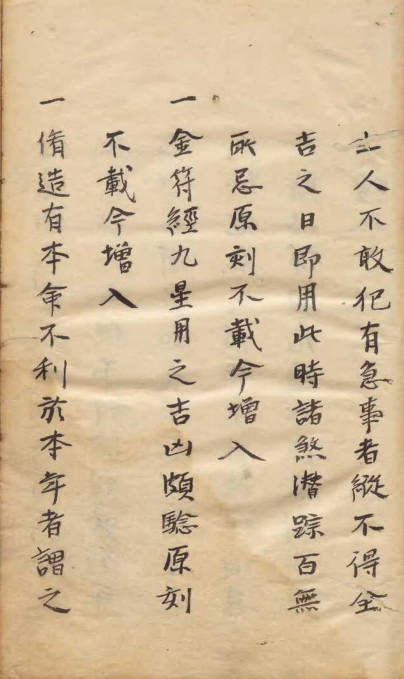 亡人不敢犯有急事者縱不得全
吉之日即用此時諸煞潛踪百無
所忌原刻不載今增入
一金符經九星用之吉凶頗驗原刻
不載今增入
一脩造有本命不利於本年者謂之